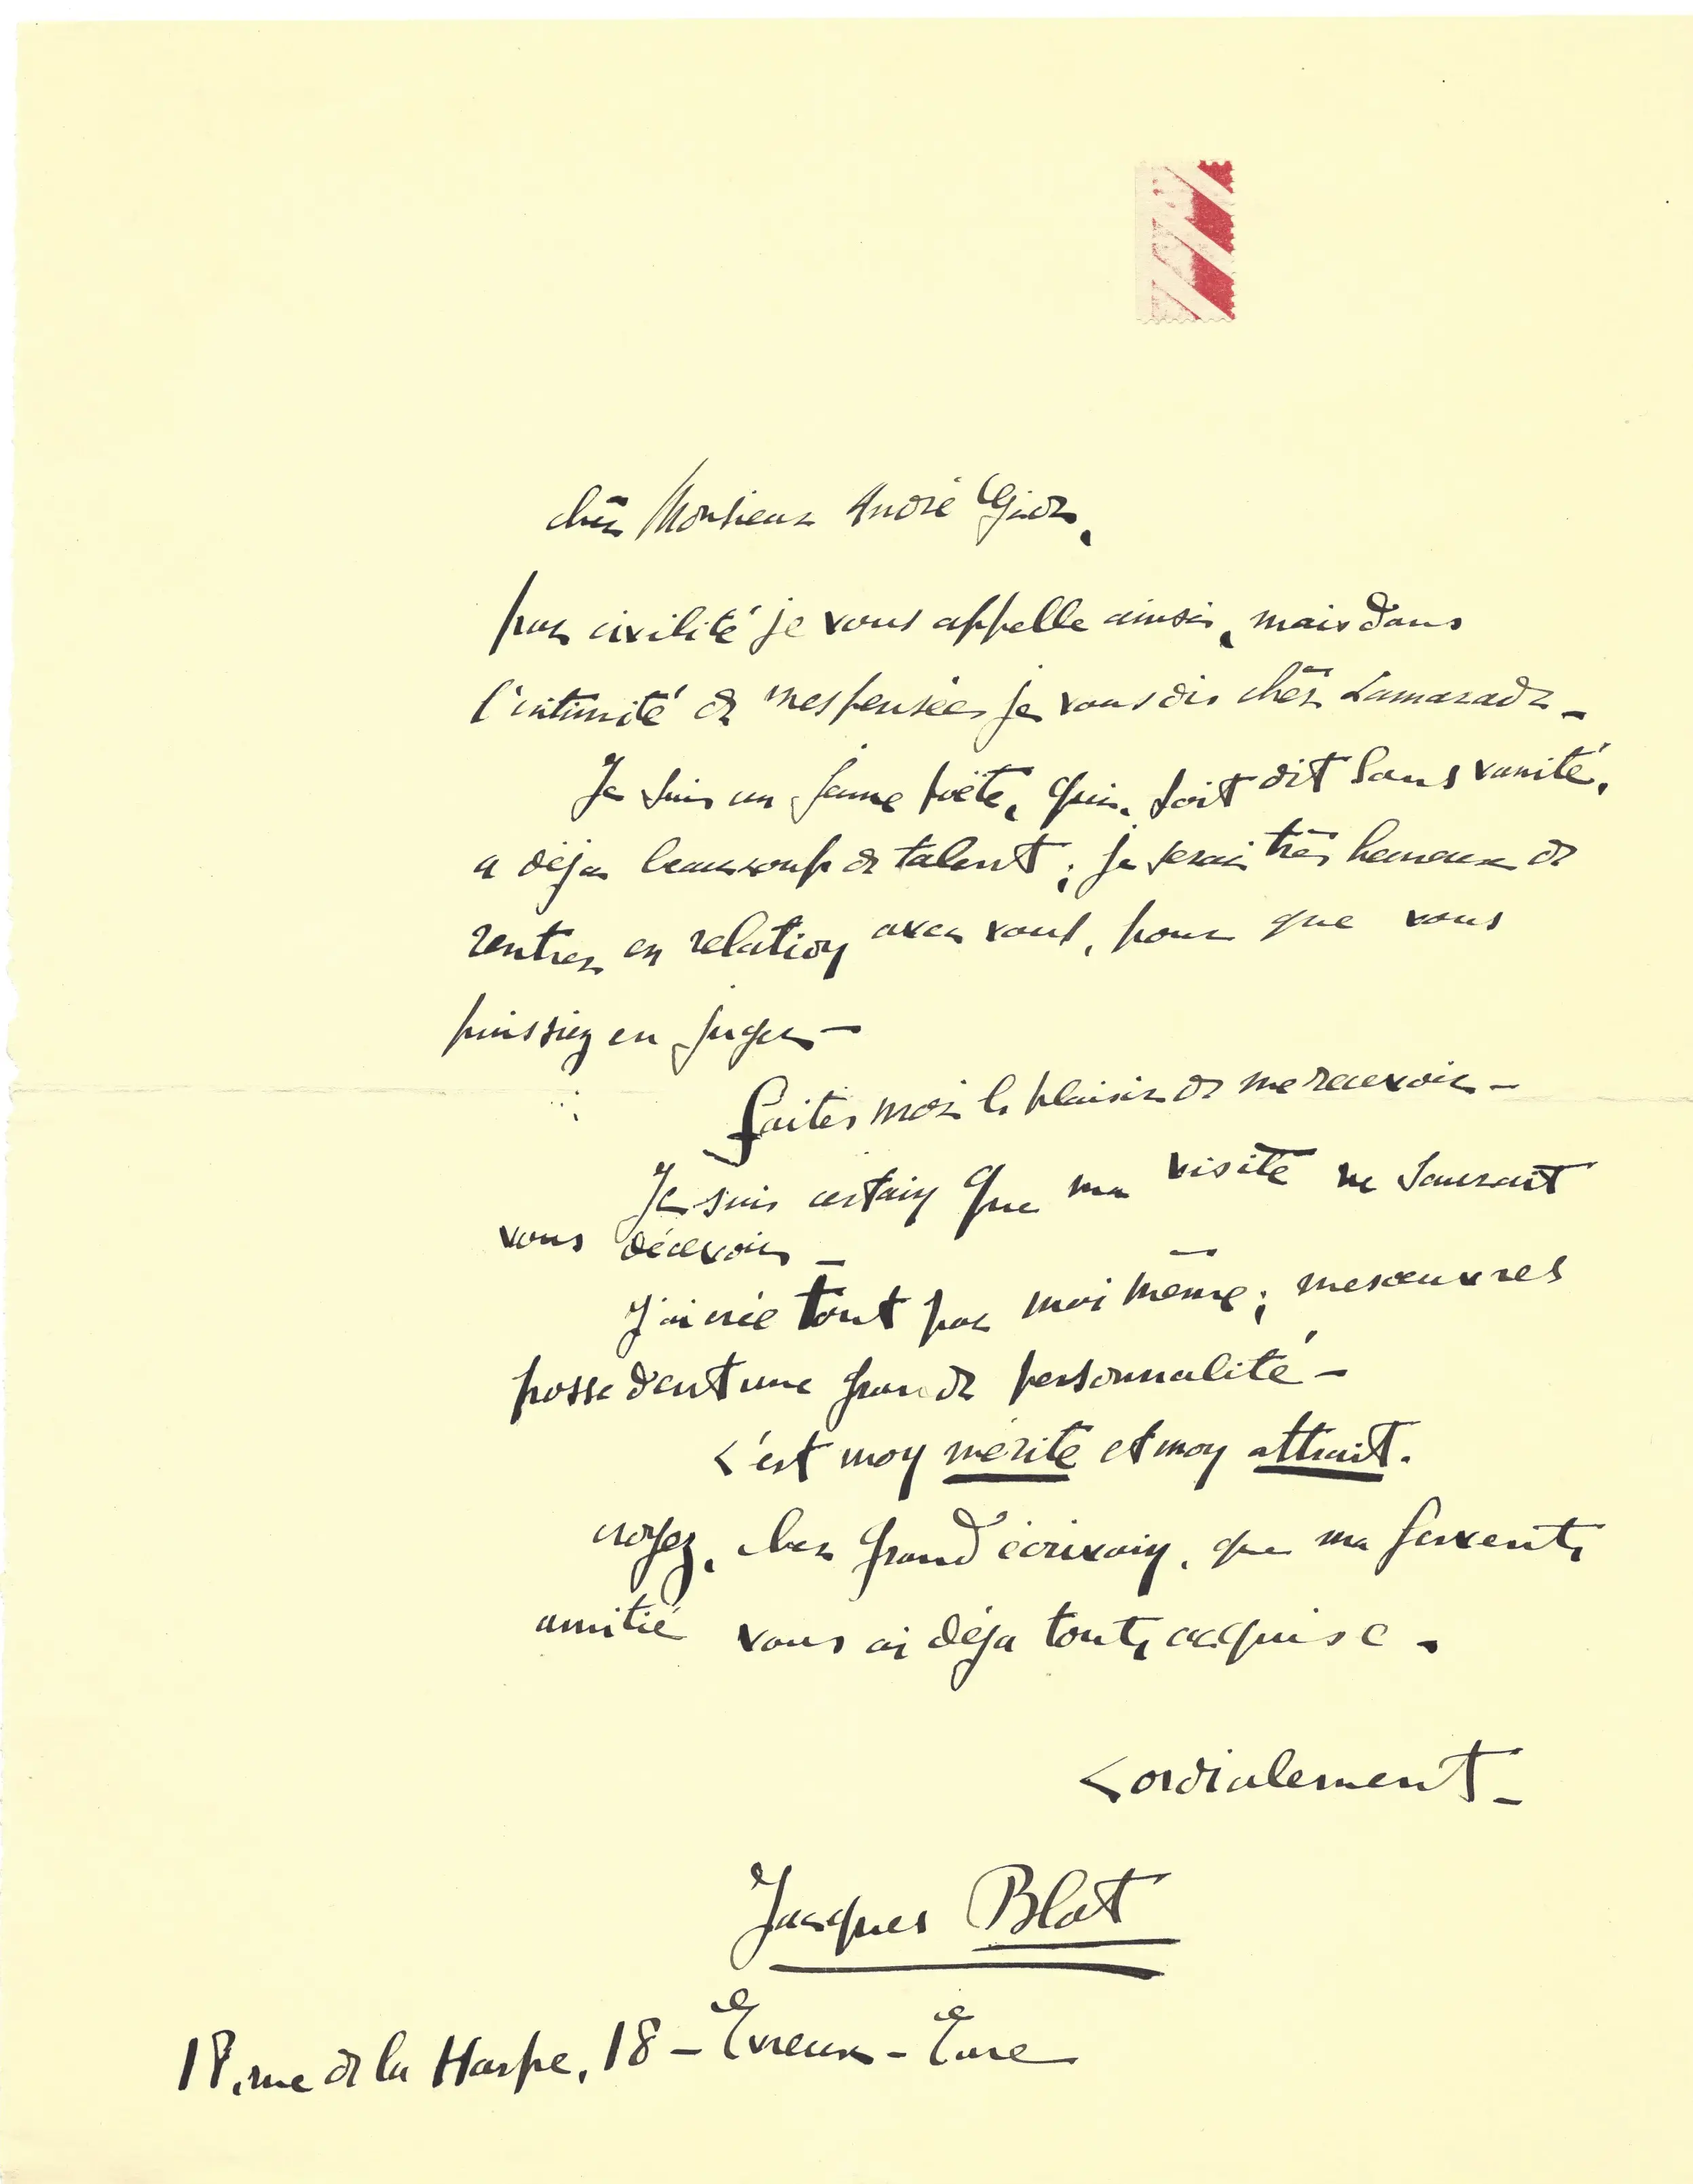 chèr Monsieur André Gide,
par civilité je vous appelle ainsi, mais dans
l'intimité de mes pensées je vous dis chèr Camarade -
Je suis un jeune poëte, qui, soit dit sans vanité,
a déja beaucoup de talent ; je serai très heureux de
rentrer en relation avec vous, pour que vous
puissiez en juger -
faites moi le plaisir de me recevoir -
Je suis certain que ma visite ne saurait
vous décevoir -
J'ai créé tout par moi même ; mes œuvres
possedent une grande personnalité -
C'est mon mérite et mon attrait.
croyez, cher grand écrivain, que ma fervente
amitié vous ai déja toute acquise -
Cordialement -
Jacques Blot
18, rue de la Harpe, 18 - Evreux - Eure